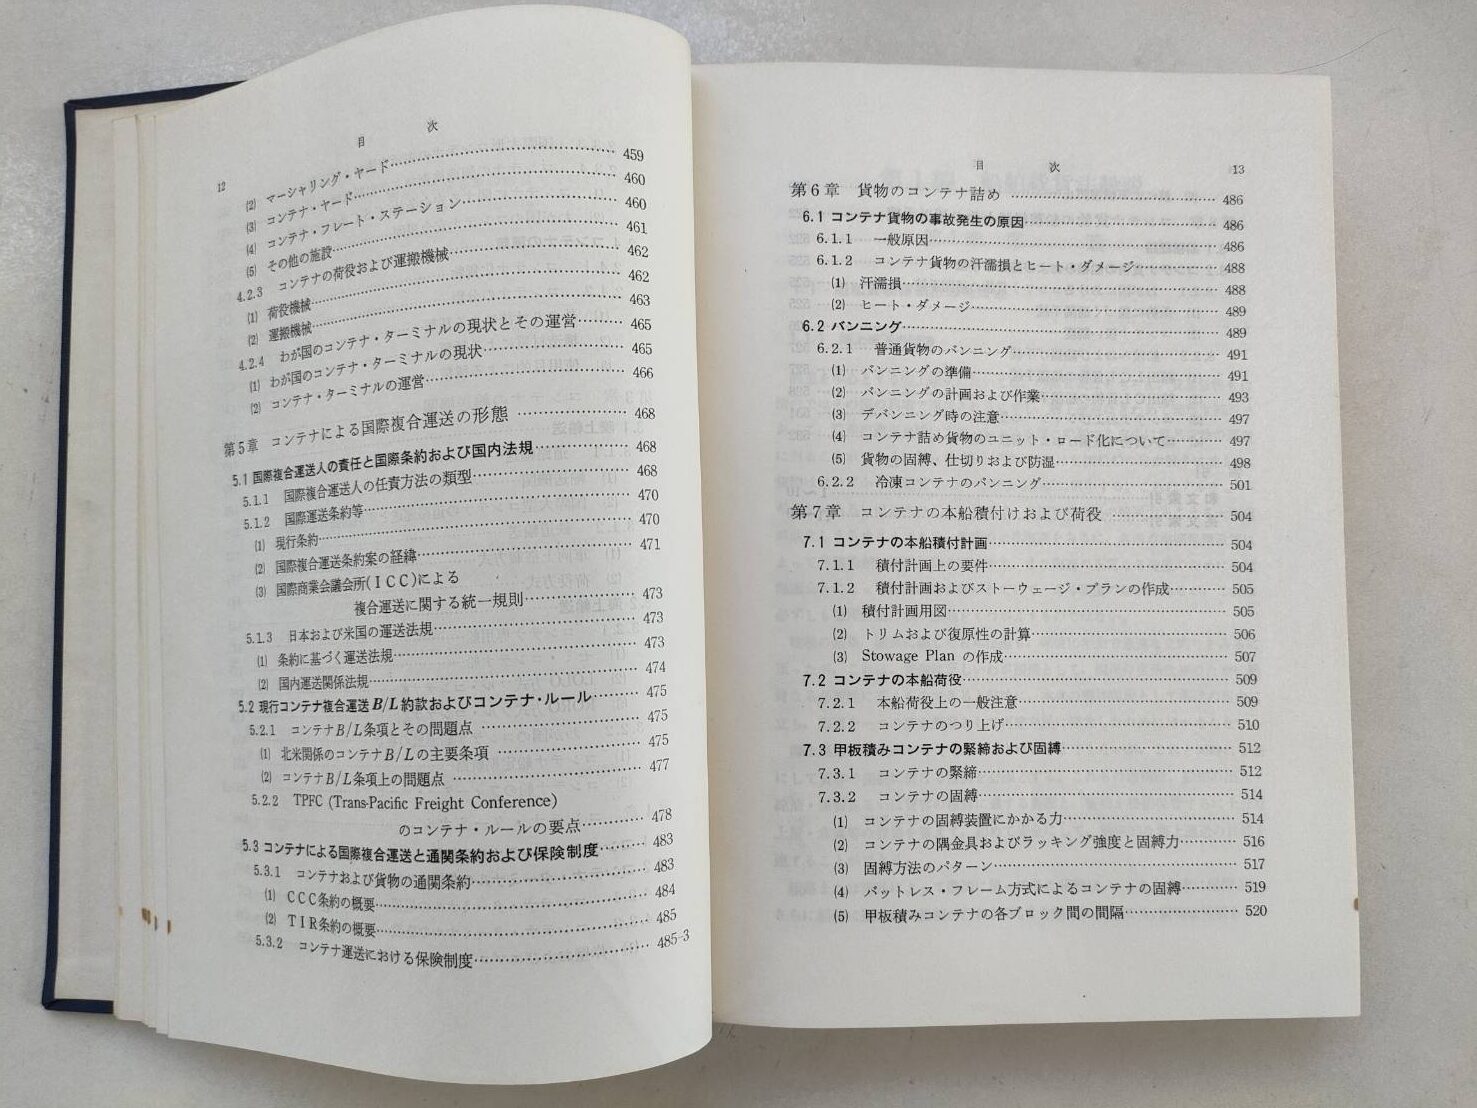 12
目 次
(2) マーシャリング・ヤード 459
(3) コンテナ・ヤード 460
(4) コンテナ・フレート・ステーション 460
(5) その他の施設 461
4.2.3 コンテナの荷役および運搬機械 462
(1) 荷役機械 462
(2) 運搬機械 463
4.2.4 わが国のコンテナ・ターミナルの現状とその運営 465
(1) わが国のコンテナ・ターミナルの現状 465
(2) コンテナ・ターミナルの運営 466
第5章 コンテナによる国際複合運送の形態 468
5.1 国際複合運送人の責任と国際条約および国内法規 468
5.1.1 国際複合運送人の任責方法の類型 468
5.1.2 国際運送条約等 470
(1) 現行条約 470
(2) 国際複合運送条約案の経緯 471
(3) 国際商業会議会所(ICC)による
複合運送に関する統一規則 473
5.1.3 日本および米国の運送法規 473
(1) 条約に基づく運送法規 473
(2) 国内運送関係法規 474
5.2 現行コンテナ複合運送B/L約款およびコンテナ・ルール 475
5.2.1 コンテナB/L条項とその問題点 475
(1) 北米関係のコンテナB/Lの主要条項 475
(2) コンテナB/L条項上の問題点 477
5.2.2 TPFC (Trans-Pacific Freight Conference)
のコンテナ・ルールの要点 478
5.3 コンテナによる国際複合運送と通関条約および保険制度 483
5.3.1 コンテナおよび貨物の通関条約 483
(1) CCC条約の概要 484
(2) TIR条約の概要 485
5.3.2 コンテナ運送における保険制度 485-3
目 次 13
第6章 貨物のコンテナ詰め 486
6.1 コンテナ貨物の事故発生の原因 486
6.1.1 一般原因 486
6.1.2 コンテナ貨物の汗濡損とヒート・ダメージ 488
(1) 汗濡損 488
(2) ヒート・ダメージ 489
6.2 バンニング 489
6.2.1 普通貨物のバンニング 491
(1) バンニングの準備 491
(2) バンニングの計画および作業 493
(3) デバンニング時の注意 497
(4) コンテナ詰め貨物のユニット・ロード化について 497
(5) 貨物の固縛、仕切りおよび防湿 498
6.2.2 冷凍コンテナのバンニング 501
第7章 コンテナの本船積付けおよび荷役 504
7.1 コンテナの本船積付計画 504
7.1.1 積付計画上の要件 504
7.1.2 積付計画およびストーウェージ・プランの作成 505
(1) 積付計画用図 505
(2) トリムおよび復原性の計算 506
(3) Stowage Plan の作成 507
7.2 コンテナの本船荷役 509
7.2.1 本船荷役上の一般注意 509
7.2.2 コンテナのつり上げ 510
7.3 甲板積みコンテナの緊締および固縛 512
7.3.1 コンテナの緊締 512
7.3.2 コンテナの固縛 514
(1) コンテナの固縛装置にかかる力 514
(2) コンテナの隅金具およびラッキング強度と固縛力 516
(3) 固縛方法のパターン 517
(4) バットレス・フレーム方式によるコンテナの固縛 519
(5) 甲板積みコンテナの各ブロック間の間隔 520